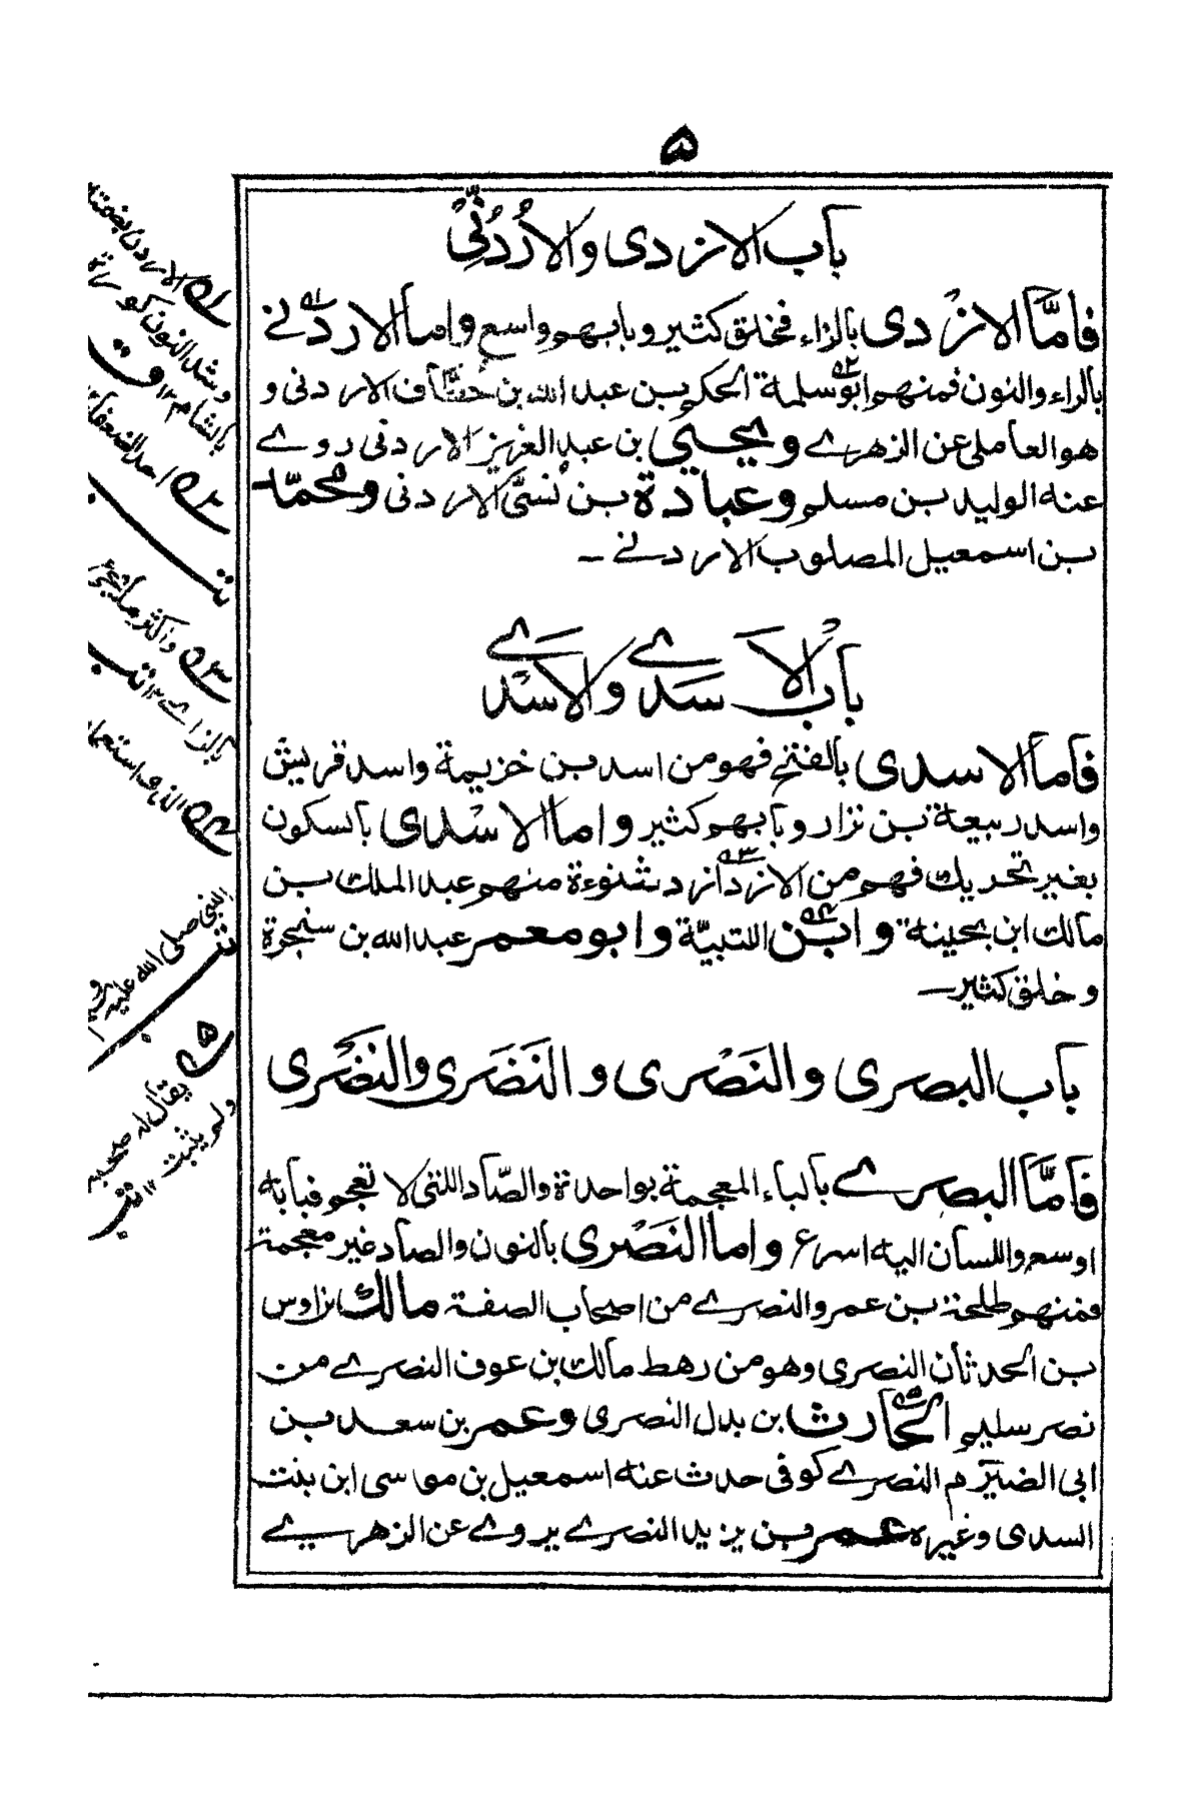 ۵
باب الازدی والاُرْدُنِّیْ
فامّا الازْدی بالزاء فخلق کثیر وبابهم واسع واما الاردنے
بالراء والنون فمنهم ابوسلمة الحکم بن عبد الله بن خُطّاف الاردنی و
هو العاملی عن الزهرے ویحیی بن عبد العزیز الاردنی روے
عنه الولید بن مسلم وعبادة بن نُسَیّ الاردنی ومحمّد
بن اسمعیل المصلوب الاردنے ـ
باب الاَسَدے والاسْدے
فاما الاسدی بالفتح فهو من اسد بن خزیمة واسد قریش
واسد ربیعة بن نزار وبابهم کثیر واما الاسْدی بالسکون
بغیر تحریك فهم من الازد ازد شنوءة منهم عبد الملك بن
مالك ابن بحینة وابن اللتبیّة وابو معمر عبد الله بن سنجرة
وخلق کثیر ـ
باب البصری والنَصْری والنَضَری والنَضْری
فامّا البصرے بالباء المعجمة بواحدة والصّاد اللتی لا تعجم فبابه
اوسع واللسان الیه اسرع واما النَصْری بالنون والصاد غیر معجمة
فمنهم طلحة بن عمر والنصرے من اصحاب الصفة مالك بن اوس
بن الحدثان النصری وهو من رهط مالك بن عوف النصرے من
نصر سلیم الحارث بن بدل النصری وعمر بن سعد بن
ابی الضیرم النصرے کوفی حدث عنه اسمعیل بن موسی ابن بنت
السدی وغیره عمر بن یزید النصرے یروے عن الزهرے
۱ه الاردن بضمتین
وشد النون کورة
بالشام ۱۲ ق
۲ه احد الضعفاء ۱۲
۳ه واکثر ما یجیء
بالزاے ۱۲
۴ه استعمله
النبی صلی الله علیه و
۵ یقال له صحبة
ولم یثبت ۱۲